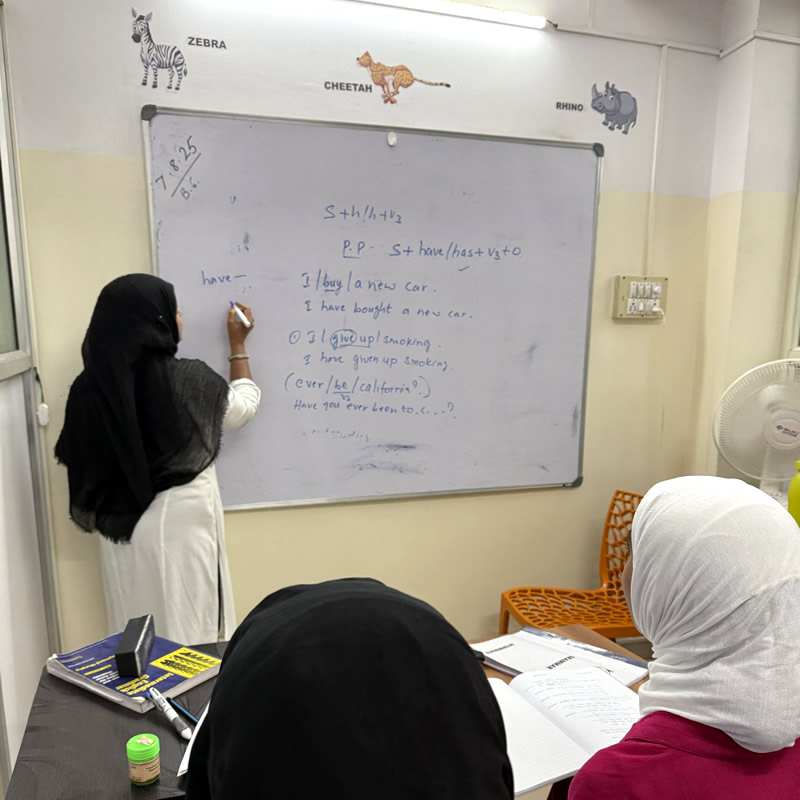 ZEBRA
CHEETAH
RHINO
7.8.25
B.6.
S+h/h+v3
P.P- S+have/has+v3+O
have-
I/buy/a new car.
I have bought a new car.
I/give up/smoking.
I have given up smoking.
(ever/be/california?)
v3
Have you ever been to c....?
Intermediate
English
GRAMMAR